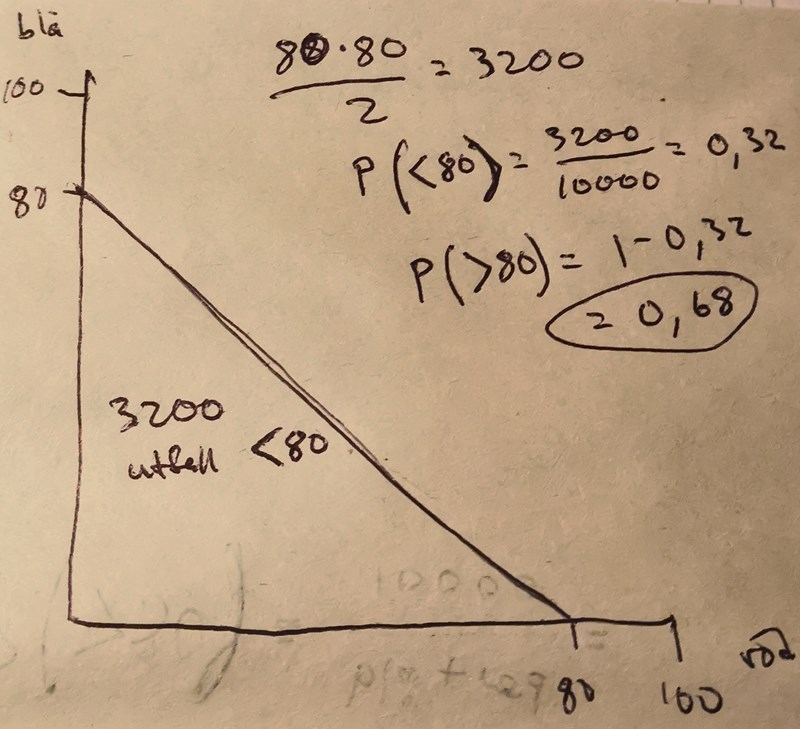 blå
100
80
80·80 / 2 = 3200
P(<80) = 3200 / 10000 = 0,32
P(>80) = 1-0,32
= 0,68
3200
utfall <80
80
100
röd